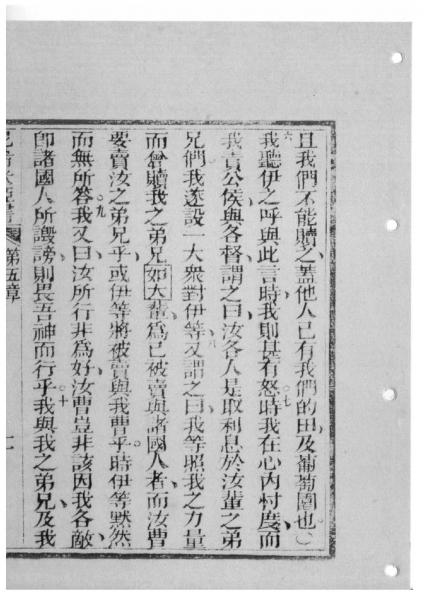 且我們不能贖之蓋他人已有我們的田及葡萄園也
六我聽伊之呼與此言時我則甚有怒七時我在心內忖度而
我責公侯與各督謂之曰汝各人是取利息於汝輩之弟
兄們我遂設一大衆對伊等八又謂之曰我等照我之力量
而曾贖我之弟兄如大輩為已被賣與諸國人者而汝曹
要賣汝之弟兄乎或伊等將被賣與我曹乎時伊等默然
而無所答九我又曰汝所行非為好汝曹豈非該因我各敵
即諸國人所譭謗則畏吾神而行乎十我與我之弟兄及我
第五章